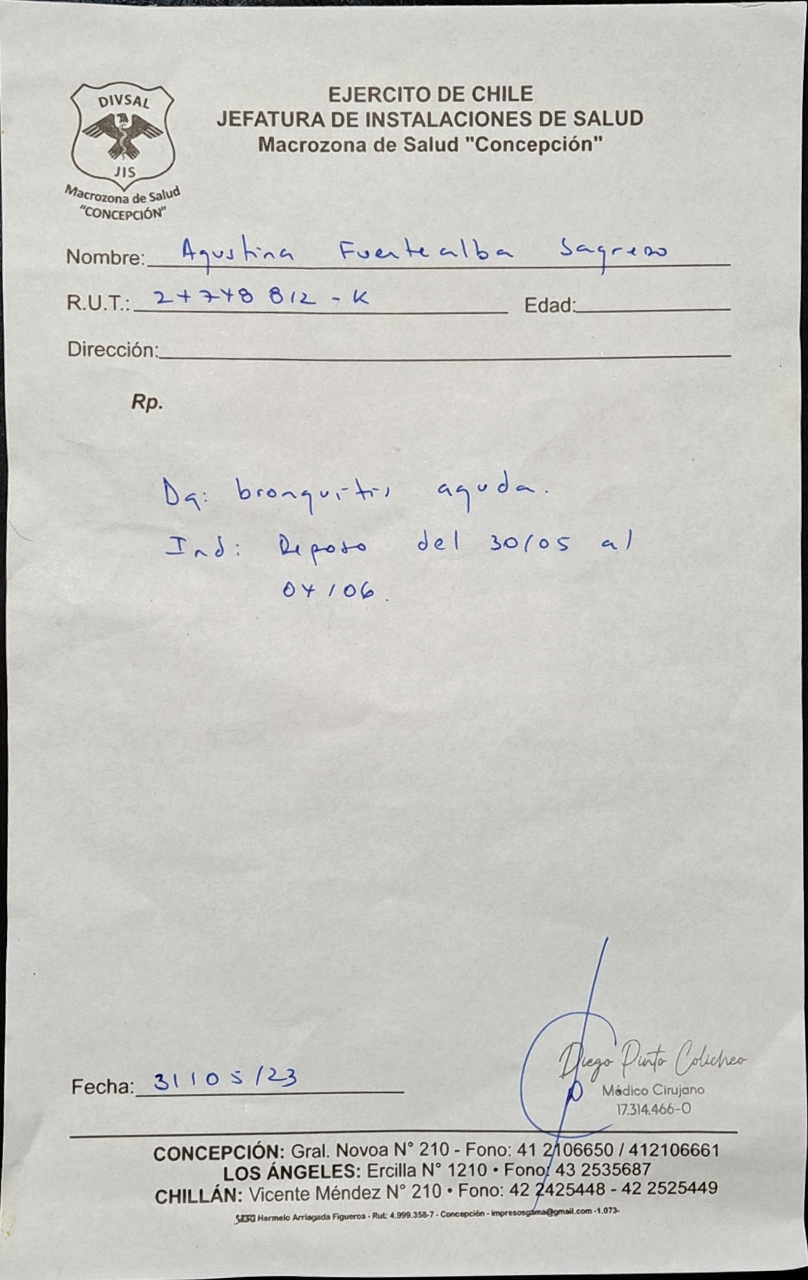 DIVSAL
JIS
Macrozona de Salud
"CONCEPCIÓN"
EJERCITO DE CHILE
JEFATURA DE INSTALACIONES DE SALUD
Macrozona de Salud "Concepción"
Nombre: Agustina Fuentealba Sagredo
R.U.T.: 24748812-K Edad:
Dirección:
Rp.
Dg: bronquitis aguda.
Ind: Reposo del 30/05 al
04/06.
Fecha: 31/05/23
Diego Pinto Colicheo
Médico Cirujano
17.314.466-0
CONCEPCIÓN: Gral. Novoa N° 210 - Fono: 41 2106650 / 412106661
LOS ÁNGELES: Ercilla N° 1210 • Fono: 43 2535687
CHILLÁN: Vicente Méndez N° 210 • Fono: 42 2425448 - 42 2525449
Hermelo Arriagada Figueroa - Rut: 4.999.358-7 - Concepción - impresosgama@gmail.com -1.073-